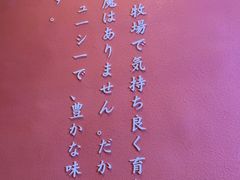 牧場で気持ち良く育
魔はありません。だか
ューシーで、豊かな味
す。